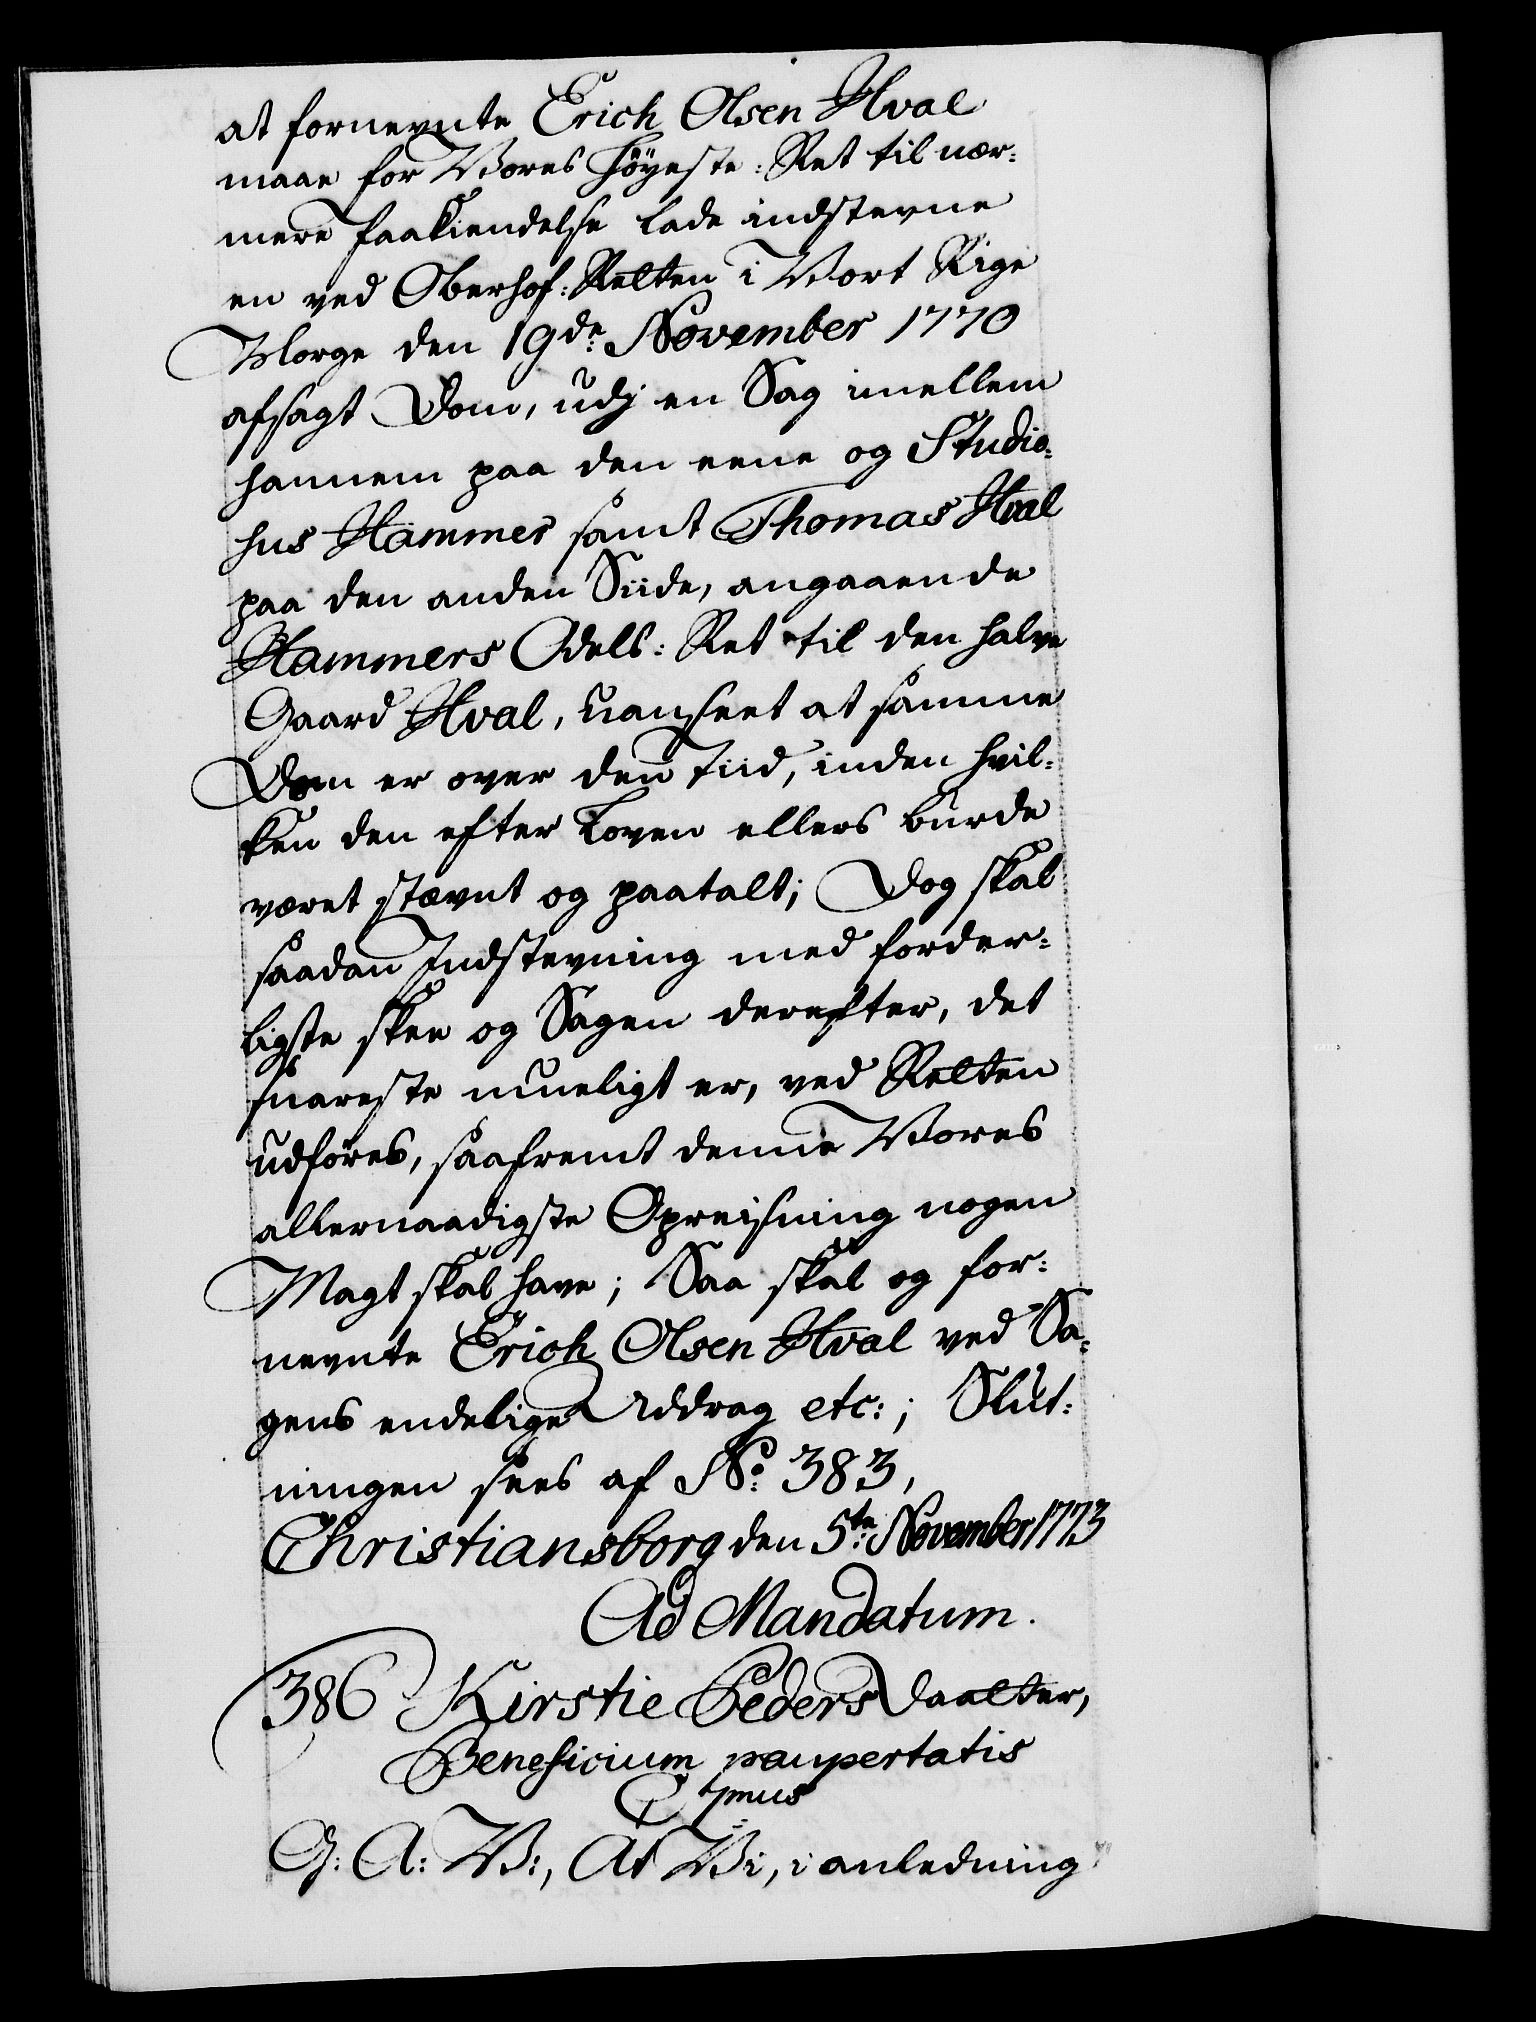 at fornevnte Erich Olsen Hval
maae for Vores Höyeste: Ret til nær:
mere Paakiendelse lade indstevne
en ved Oberhof: Retten i Vort Rige
Norge den 19de November 1770
afsagt Dom, udj en Sag imellem
hannem paa den eene og Studio:
sus Hammer samt Thomas Hval
paa den anden Siide, angaaende
Hammers Odels: Ret til den halve
Gaard Hval, uanseet at samme
Dom er over den Tiid, inden hvil:
ken den efter Loven ellers burde
været stævnt og paatalt; Dog skal
saadan Indstevning med forder:
ligste skee og Sagen derefter, det
snareste mueligt er, ved Retten
udföres, saafremt denne Vores
allernaadigste Opreisning nogen
Magt skal have; Saa skal og for:
nevnte Erich Olsen Hval ved Sa:
gens endelige Uddrag etc:; Slut:
ningen sees af No: 383,
Christiansborg den 5te: November 1773
Ad Mandatum.
386 Kirstie Peders Daatter,
Beneficium paupertatis
C 7mus
G: A: V:, At Vi, i anledning